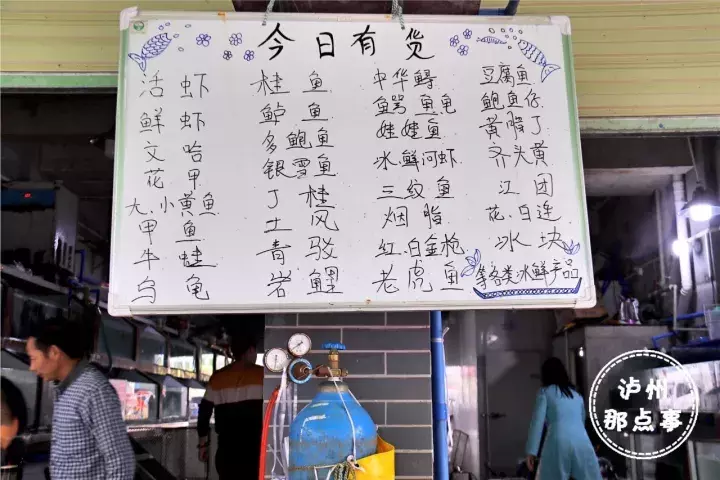 今日有货
活虾 桂鱼 中华鲟 豆腐鱼
鲜虾 鲈鱼 鳄鱼龟 鲍鱼仔
文哈 多鲍鱼 娃娃鱼 黄腊丁
花甲 银雪鱼 冰鲜河虾 齐头黄
大.小黄鱼 丁桂 三纹鱼 江团
甲鱼 土凤 烟脂 花.白连
牛蛙 青驳 红.白金枪 冰块
乌龟 岩鲤 老虎鱼 等各类冰鲜产品
泸州
那点事